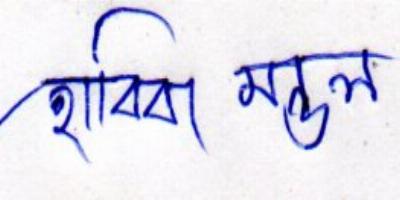 হাবিবা মন্ডল